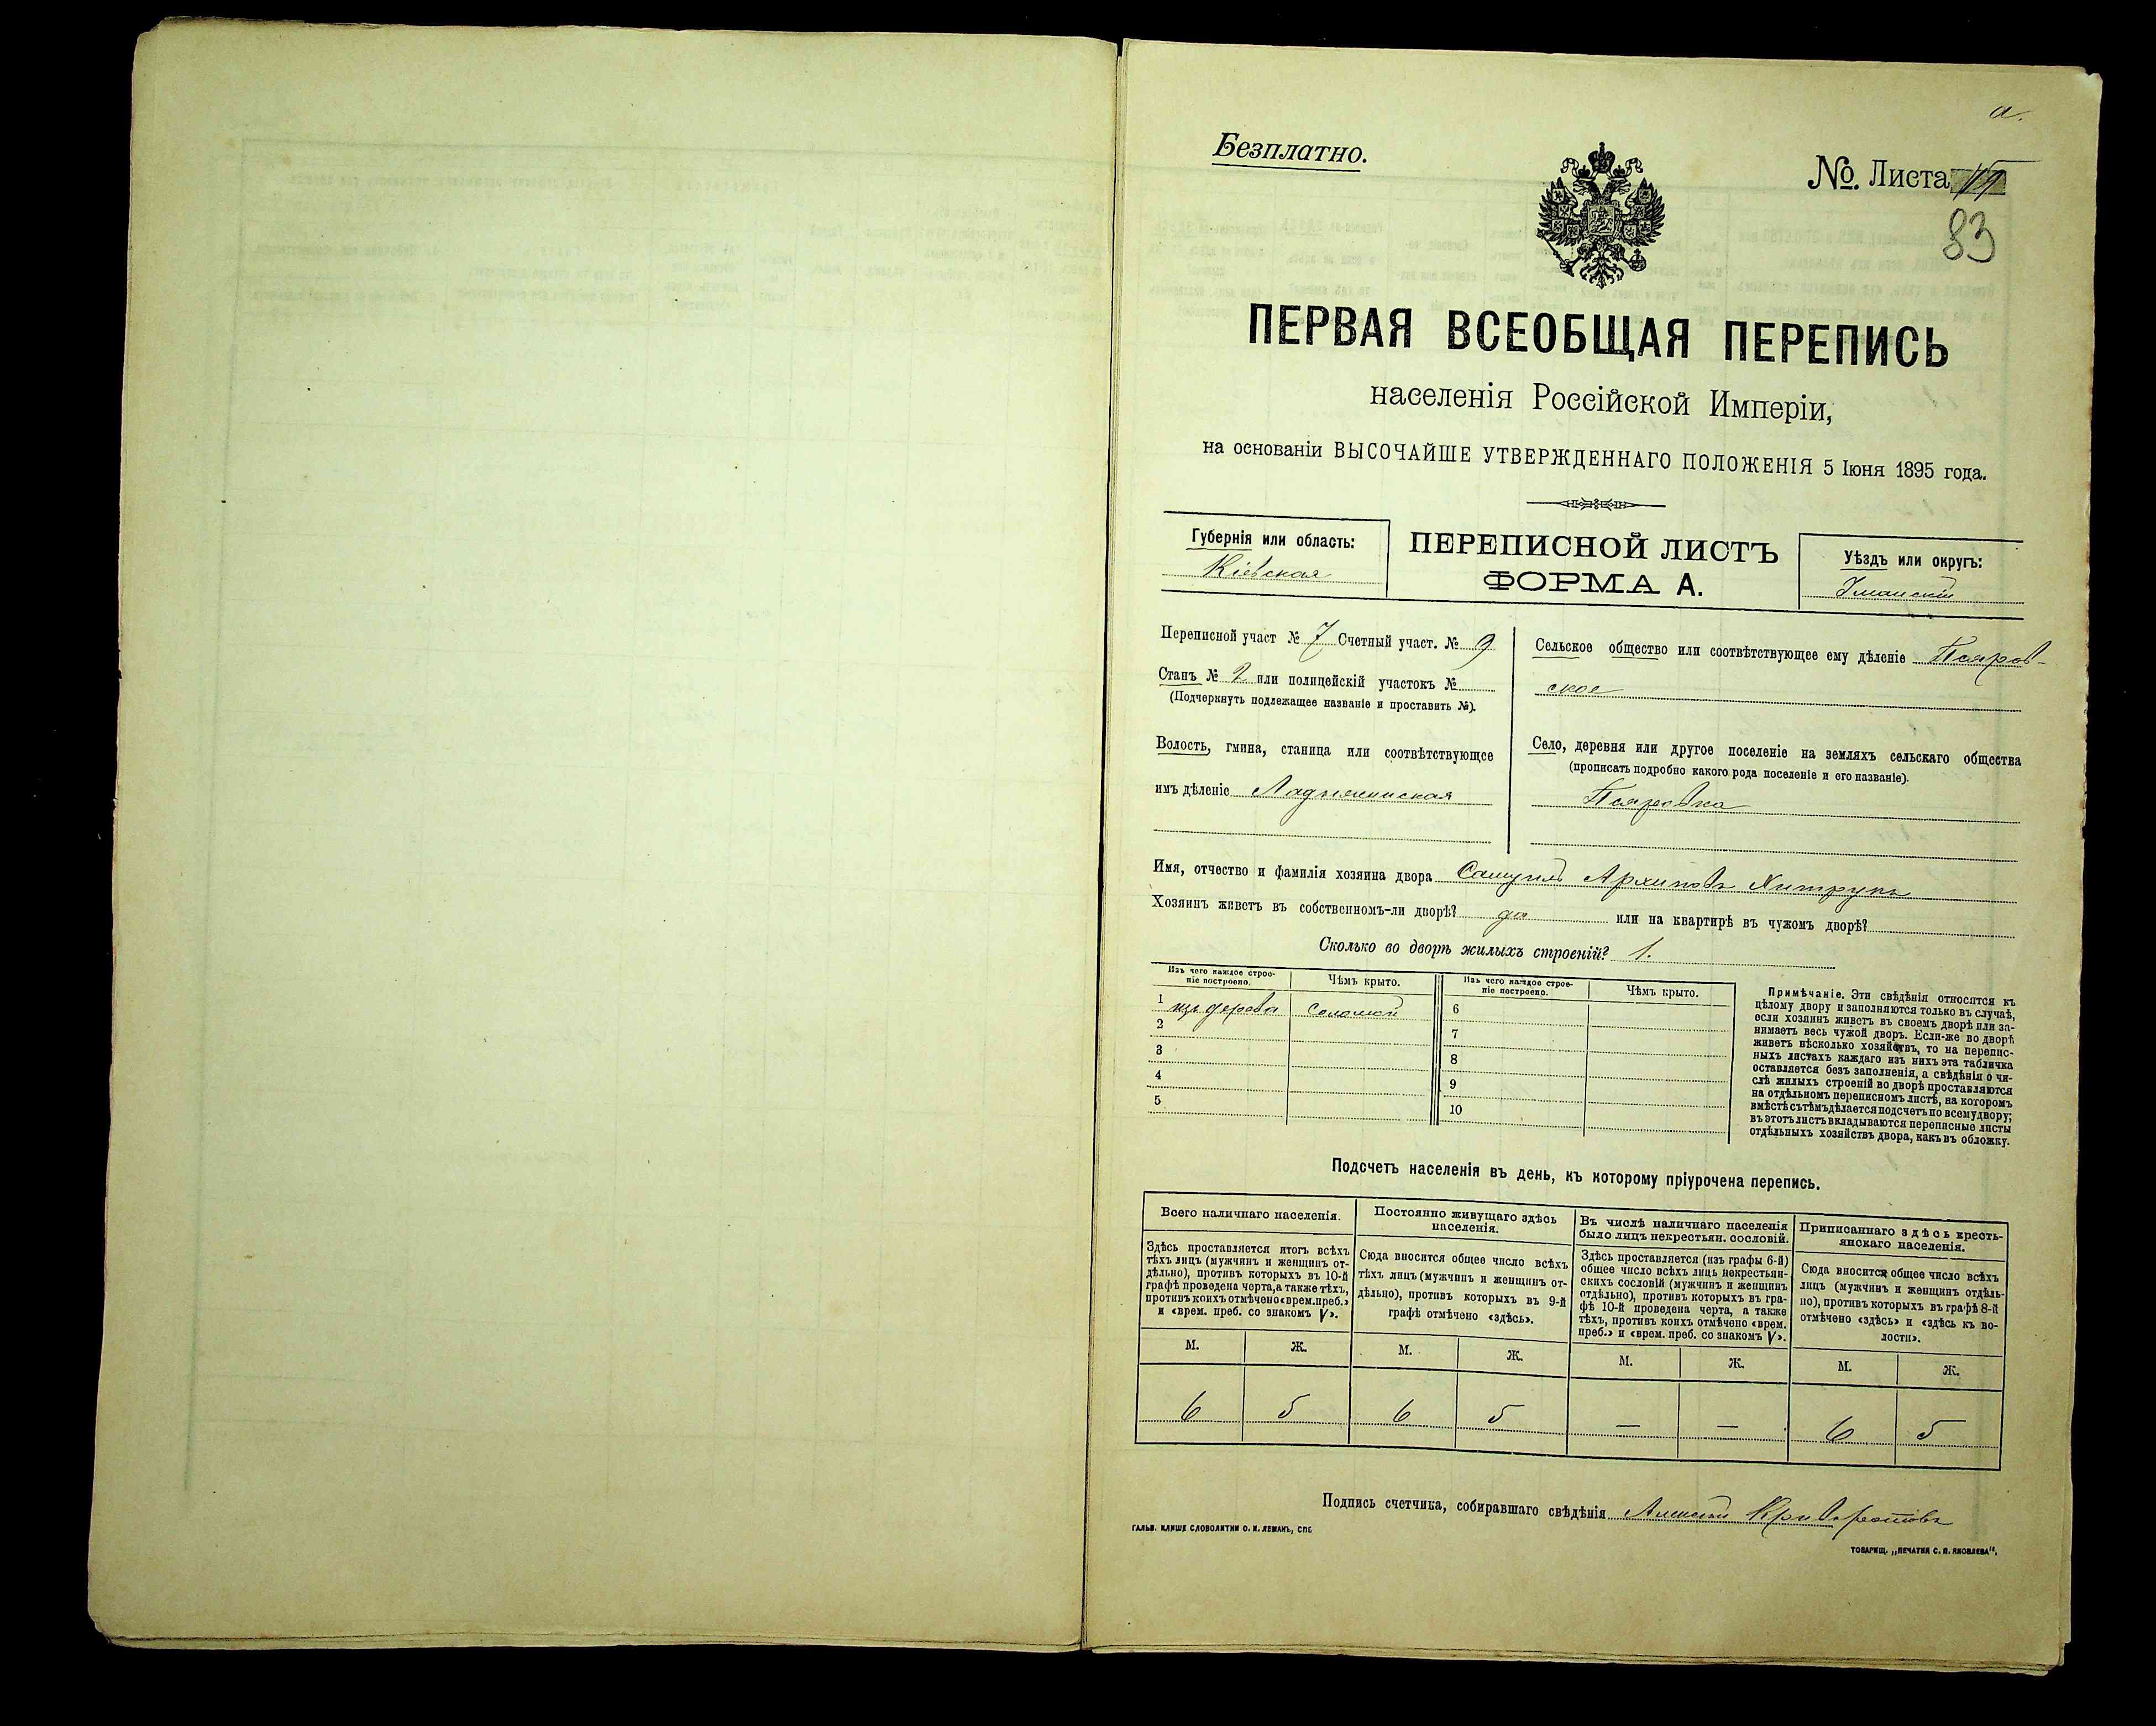 а.
Безплатно.
№. Листа
83
ПЕРВАЯ ВСЕОБЩАЯ ПЕРЕПИСЬ
населенія Россійской Имперіи,
на основаніи ВЫСОЧАЙШЕ УТВЕРЖДЕННАГО ПОЛОЖЕНІЯ 5 Іюня 1895 года.
Губернія или область:
Кіевская
ПЕРЕПИСНОЙ ЛИСТЪ
ФОРМА А.
Уѣздъ или округъ:
Уманскій
Переписной участ № 7 Счетный участ. № 9
Станъ № 2 или полицейскій участокъ №
(Подчеркнуть подлежащее названіе и проставить №).
Волость, гмина, станица или соотвѣтствующее
имъ дѣленіе Ладыжинская
Сельское общество или соотвѣтствующее ему дѣленіе Псяров-
ское
Село, деревня или другое поселеніе на земляхъ сельскаго общества
(прописать подробно какого рода поселеніе и его названіе).
Псяровка
Имя, отчество и фамилія хозяина двора Самуилъ Архиповъ Хитрукъ
Хозяинъ живетъ въ собственномъ-ли дворѣ? да или на квартирѣ въ чужомъ дворѣ?
Сколько во дворѣ жилыхъ строеній? 1.
Изъ чего каждое строе-
ніе построено.
Чѣмъ крыто.
1 изъ дерева соломой
2
3
4
5
Изъ чего каждое строе-
ніе построено.
Чѣмъ крыто.
6
7
8
9
10
Примѣчаніе. Эти свѣдѣнія относятся къ
цѣлому двору и заполняются только въ случаѣ,
если хозяинъ живетъ въ своемъ дворѣ или за-
нимаетъ весь чужой дворъ. Если-же во дворѣ
живетъ нѣсколько хозяйствъ, то на перепис-
ныхъ листахъ каждаго изъ нихъ эта табличка
оставляется безъ заполненія, а свѣдѣнія о чи-
слѣ жилыхъ строеній во дворѣ проставляются
на отдѣльномъ переписномъ листѣ, на которомъ
вмѣстѣ съ тѣмъ дѣлается подсчетъ по всему двору;
въ этотъ листъ вкладываются переписные листы
отдѣльныхъ хозяйствъ двора, какъ въ обложку.
Подсчетъ населенія въ день, къ которому пріурочена перепись.
Всего наличнаго населенія.
Здѣсь проставляется итогъ всѣхъ
тѣхъ лицъ (мужчинъ и женщинъ от-
дѣльно), противъ которыхъ въ 10-й
графѣ проведена черта, а также тѣхъ,
противъ коихъ отмѣчено «врем. преб.»
и «врем. преб. со знакомъ V».
М. Ж.
6 5
Постоянно живущаго здѣсь
населенія.
Сюда вносится общее число всѣхъ
тѣхъ лицъ (мужчинъ и женщинъ от-
дѣльно), противъ которыхъ въ 9-й
графѣ отмѣчено «здѣсь».
М. Ж.
6 5
Въ числѣ наличнаго населенія
было лицъ некрестьян. сословій.
Здѣсь проставляется (изъ графы 6-й)
общее число всѣхъ лицъ некрестьян-
скихъ сословій (мужчинъ и женщинъ
отдѣльно), противъ которыхъ въ гра-
фѣ 10-й проведена черта, а также
тѣхъ, противъ коихъ отмѣчено «врем.
преб.» и «врем. преб. со знакомъ V».
М. Ж.
— —
Приписаннаго здѣсь кресть-
янскаго населенія.
Сюда вносится общее число всѣхъ
лицъ (мужчинъ и женщинъ отдѣль-
но), противъ которыхъ въ графѣ 8-й
отмѣчено «здѣсь» и «здѣсь къ во-
лости».
М. Ж.
6 5
Подпись счетчика, собиравшаго свѣдѣнія Алексѣй
ГАЛЬВ. КЛИШЕ СЛОВОЛИТНИ О. И. ЛЕМАНЪ, СПБ
ТОВАРИЩ. „ПЕЧАТНЯ С. П. ЯКОВЛЕВА".